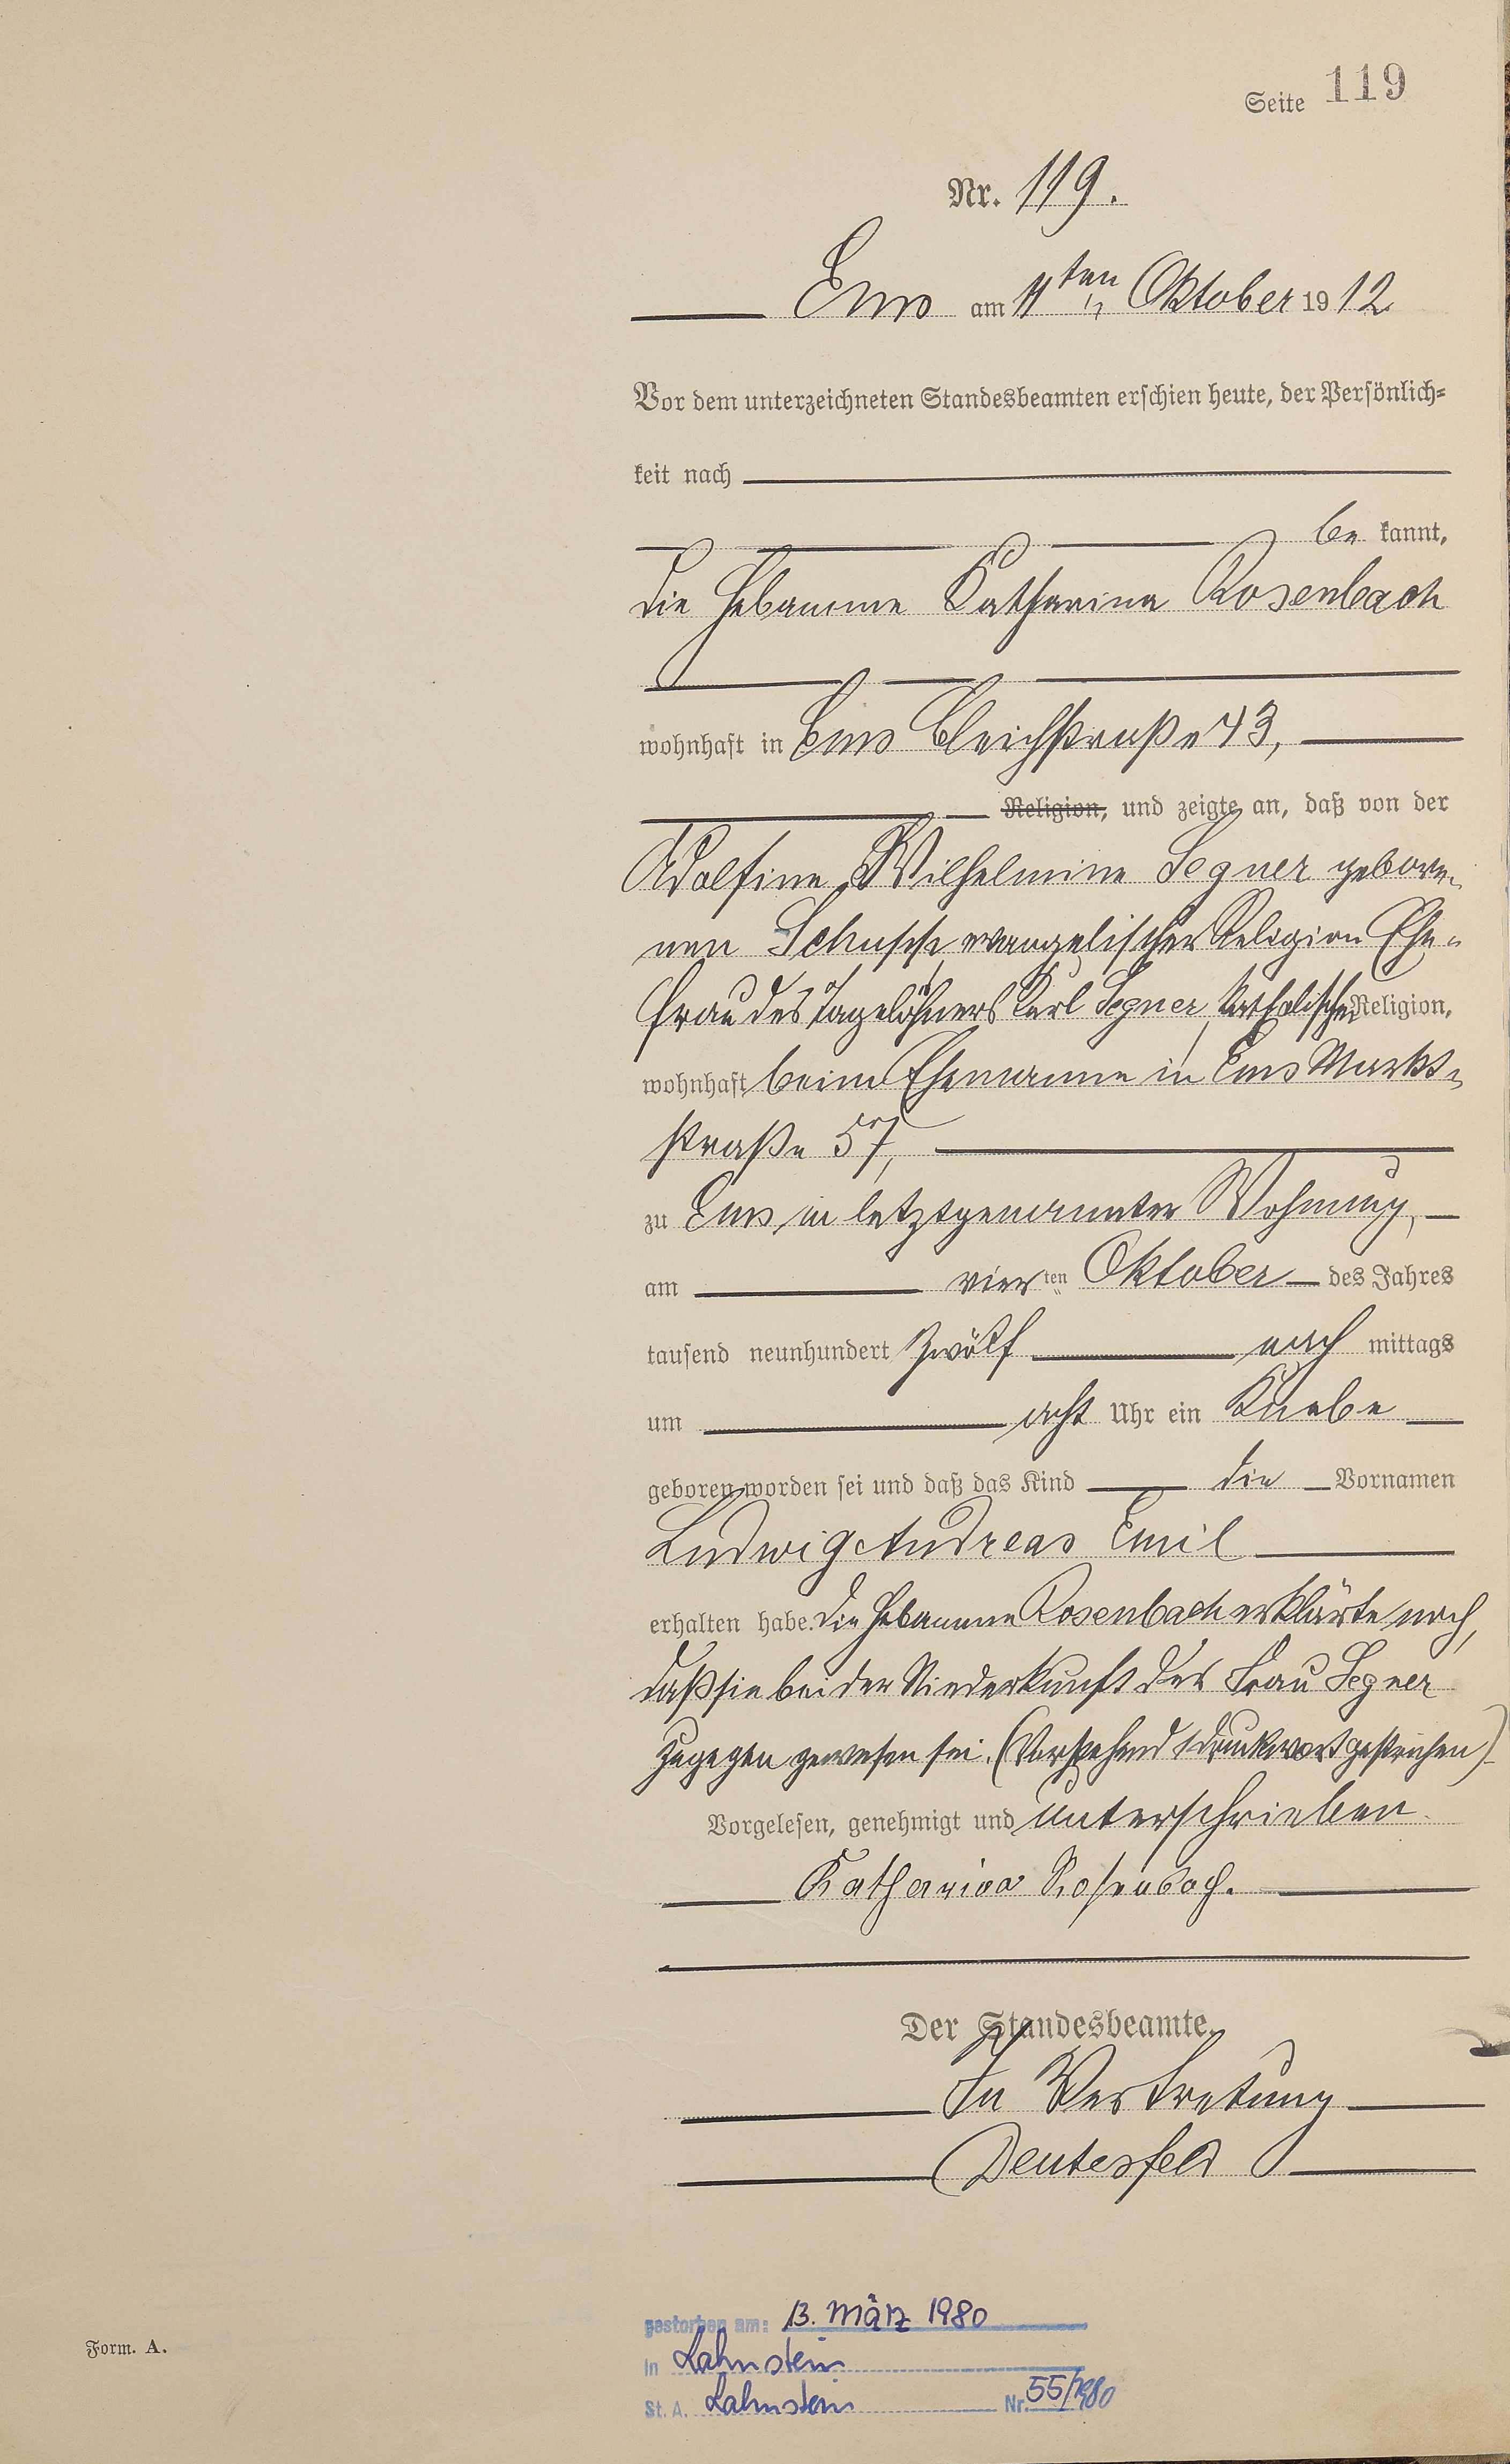 Seite 119
Nr. 119.
Ems am 11ten Oktober 1912.
Vor dem unterzeichneten Standesbeamten erschien heute, der Persönlich=
keit nach
be kannt,
die Hebamme Katharina Rosenbach
wohnhaft in Ems Bleichstraße 43,
Religion, und zeigte an, daß von der
Adolfine Wilhelmine Segner gebore-
nen Schupp, evangelischer Religion Ehe-
frau des Tagelöhners Karl Segner, katholischer Religion,
wohnhaft beim Ehemanne in Ems Markt-
straße 57,
zu Ems in letztgenannter Wohnung,
am vierten Oktober des Jahres
tausend neunhundert zwölf nach mittags
um acht Uhr ein Knabe
geboren worden sei und daß das Kind die Vornamen
Ludwig Andreas Emil
erhalten habe. Die Hebamme Rosenbach erklärte noch,
daß sie bei der Niederkunft der Frau Segner
zugegen gewesen sei. (Vorstehend 1 Druckwort gestrichen)
Vorgelesen, genehmigt und unterschrieben
Katharina Rosenbach.
Der Standesbeamte.
In Vertretung
Deutesfeld
gestorben am: 13. März 1980
in Lahnstein
St. A. Lahnstein Nr. 55/1980
Form. A.